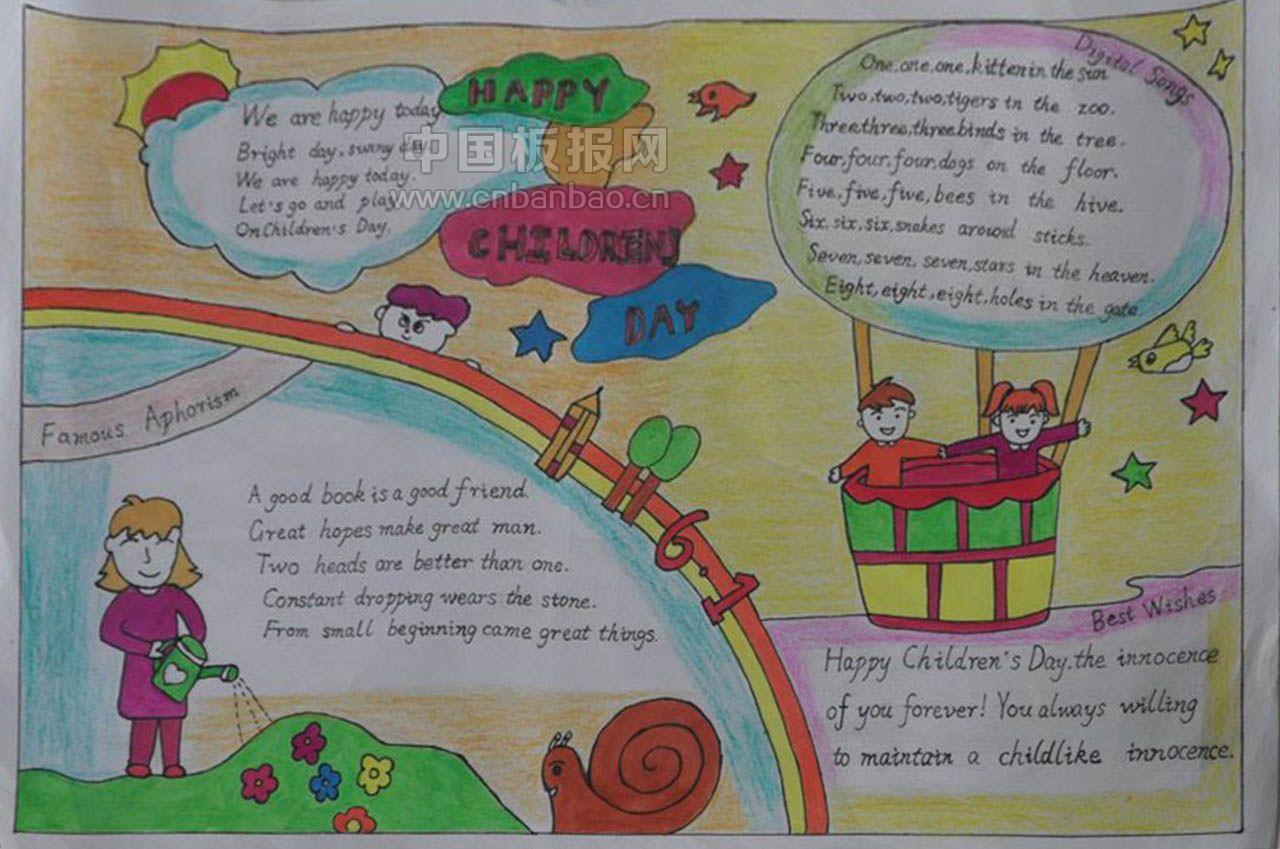 We are happy today
Bright day, sunny day.
We are happy today.
Let's go and play
On Children's Day.
HAPPY
CHILDREN'S
DAY
中国板报网
www.cnbanbao.cn
Digital Songs
One,one,one,kitten in the sun
Two,two,two,tigers in the zoo.
Three,three,three,binds in the tree.
Four,four,four,dogs on the floor.
Five,five,five,bees in the hive.
Six,six,six,snakes around sticks.
Seven,seven,seven,stars in the heaven.
Eight,eight,eight,holes in the gate
Famous Aphorism
A good book is a good friend.
Great hopes make great man.
Two heads are better than one.
Constant dropping wears the stone.
From small beginning came great things.
6.1
Best Wishes
Happy Children's Day.the innocence
of you forever! You always willing
to maintain a childlike innocence.